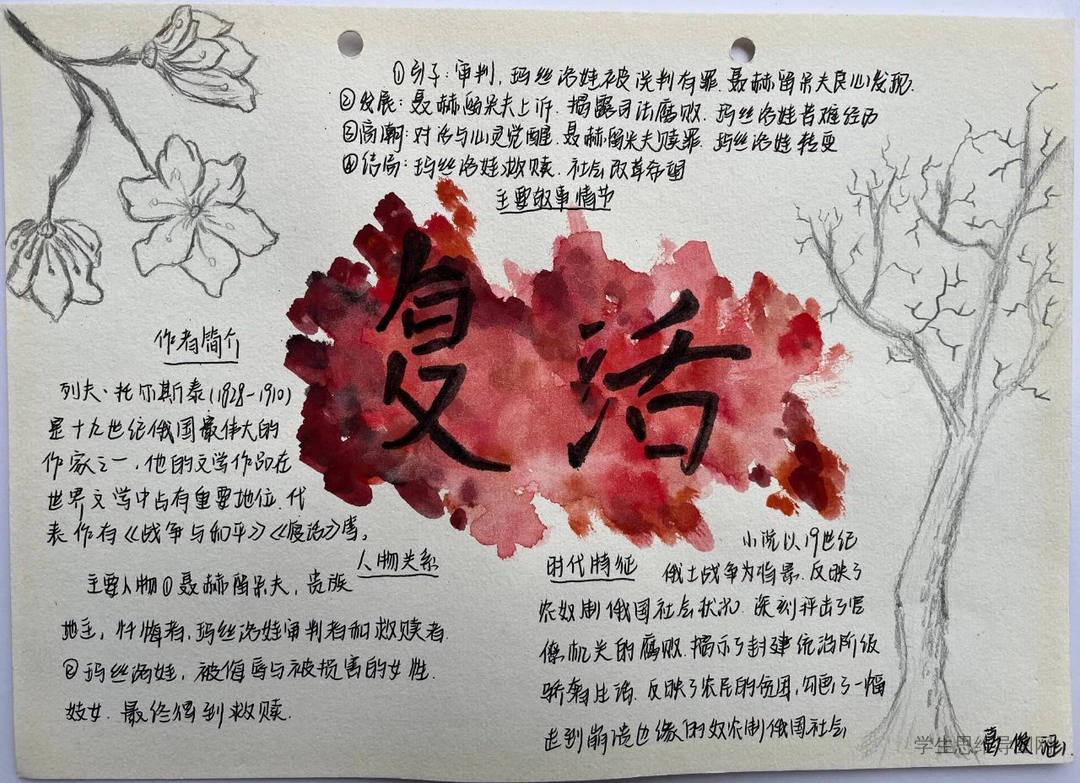 ①引子：审判，玛丝洛娃被误判有罪.聂赫留朵夫良心发现.
②发展：聂赫留朵夫上诉.揭露司法腐败.玛丝洛娃苦难经历
③高潮：对话与心灵觉醒.聂赫留朵夫赎罪.玛丝洛娃转变
④结局：玛丝洛娃救赎.社会改革希望
主要故事情节
复活
作者简介
列夫·托尔斯泰(1828-1910)
是十九世纪俄国最伟大的
作家之一，他的文学作品在
世界文学中占有重要地位.代
表作有《战争与和平》《复活》等。
人物关系
主要人物①聂赫留朵夫，贵族
地主，忏悔者，玛丝洛娃审判者和救赎者.
②玛丝洛娃，被侮辱与被损害的女性.
妓女.最终得到救赎.
时代特征
小说以19世纪
俄土战争为背景.反映了
农奴制俄国社会状况.深刻抨击了官
僚机关的腐败.揭示了封建统治阶级
骄奢生活.反映了农民的贫困，勾画了一幅
走到崩溃边缘的奴农制俄国社会
学生思维导图网